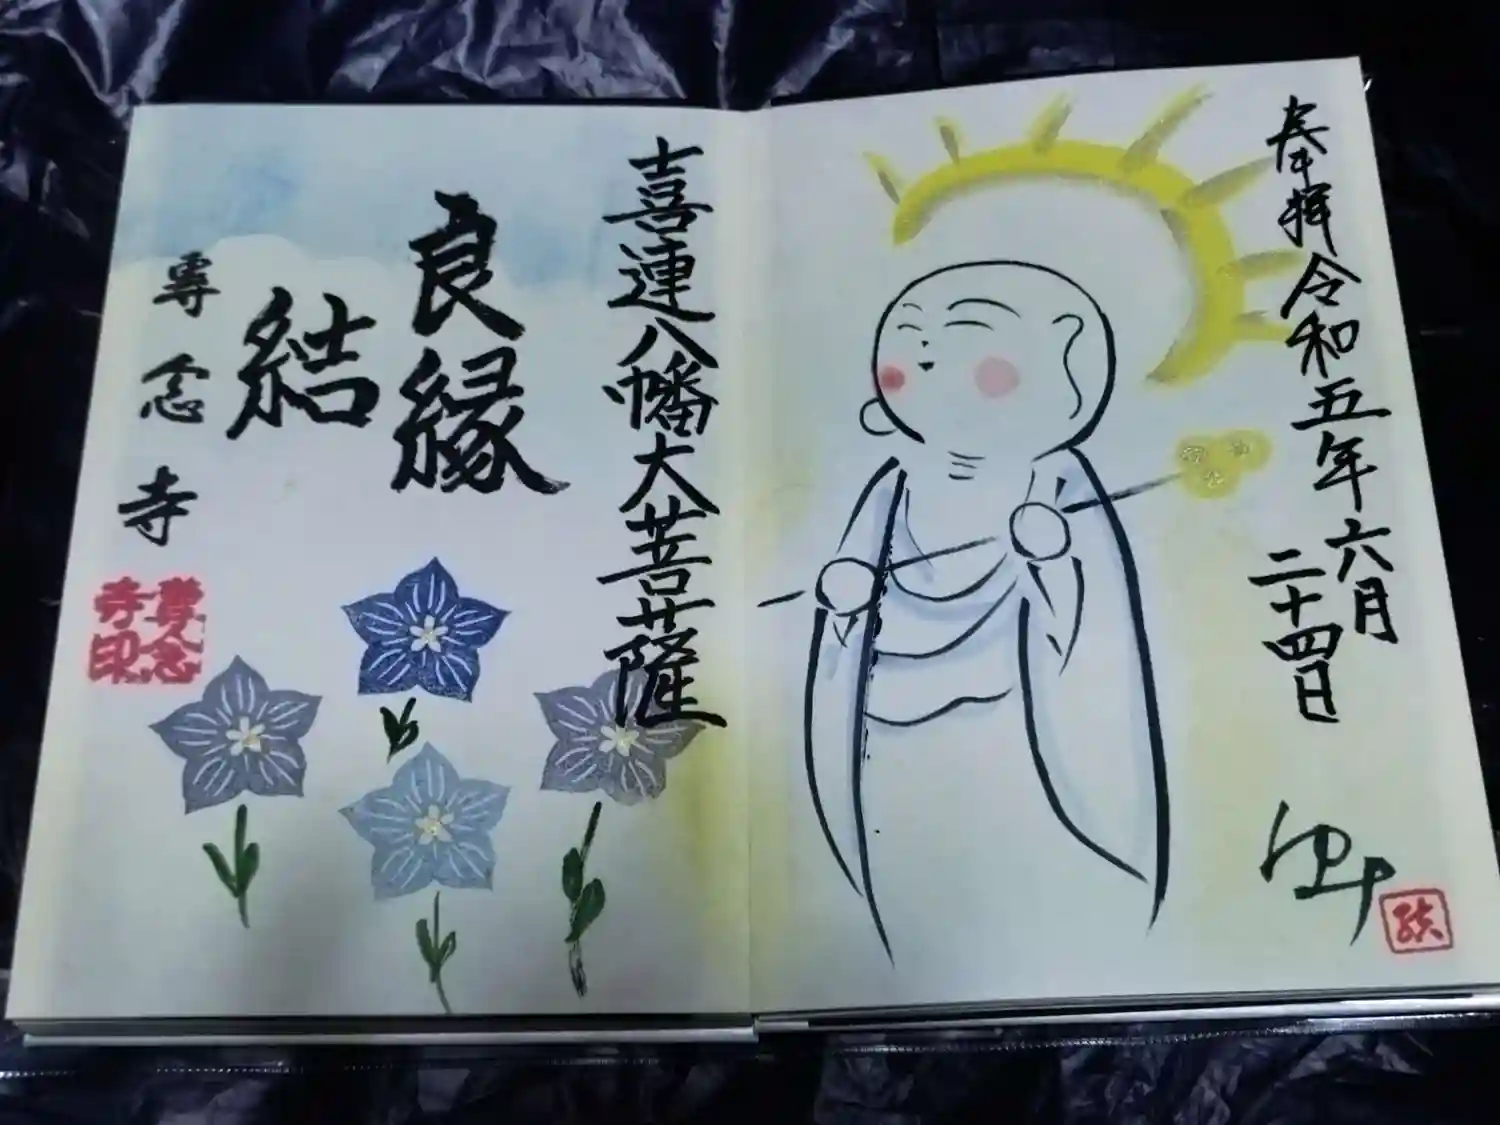 奉拝
令和五年六月
二十四日
喜連八幡大菩薩
良縁
結
専念寺
専念
寺印